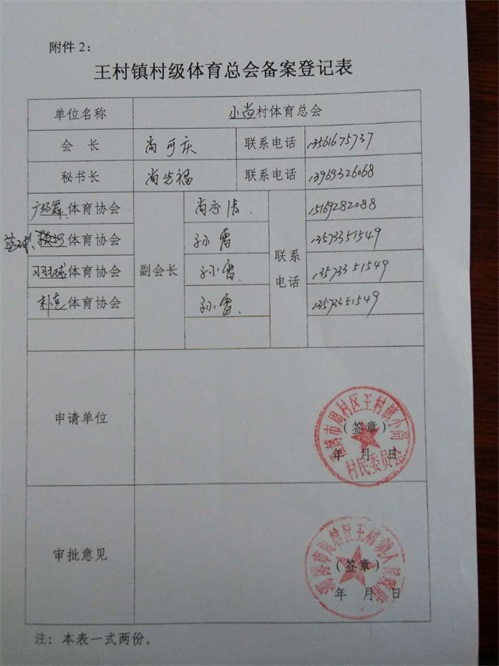 附件2：
王村镇村级体育总会备案登记表
单位名称 小尚村体育总会
会 长 尚可庆 联系电话 13561675737
秘书长 尚光福 联系电话 13969326068
广场舞体育协会 副会长 尚永清 联系电话 15169282088
体育协会 孙雷 13573351549
羽毛球体育协会 孙雷 13573351549
扑克体育协会 孙雷 13573351549
申请单位
淄博市周村区王村镇小尚村
村民委员会
（签章）
年 月 日
审批意见
淄博市周村区王村镇人民政府
（签章）
年 月 日
注：本表一式两份。